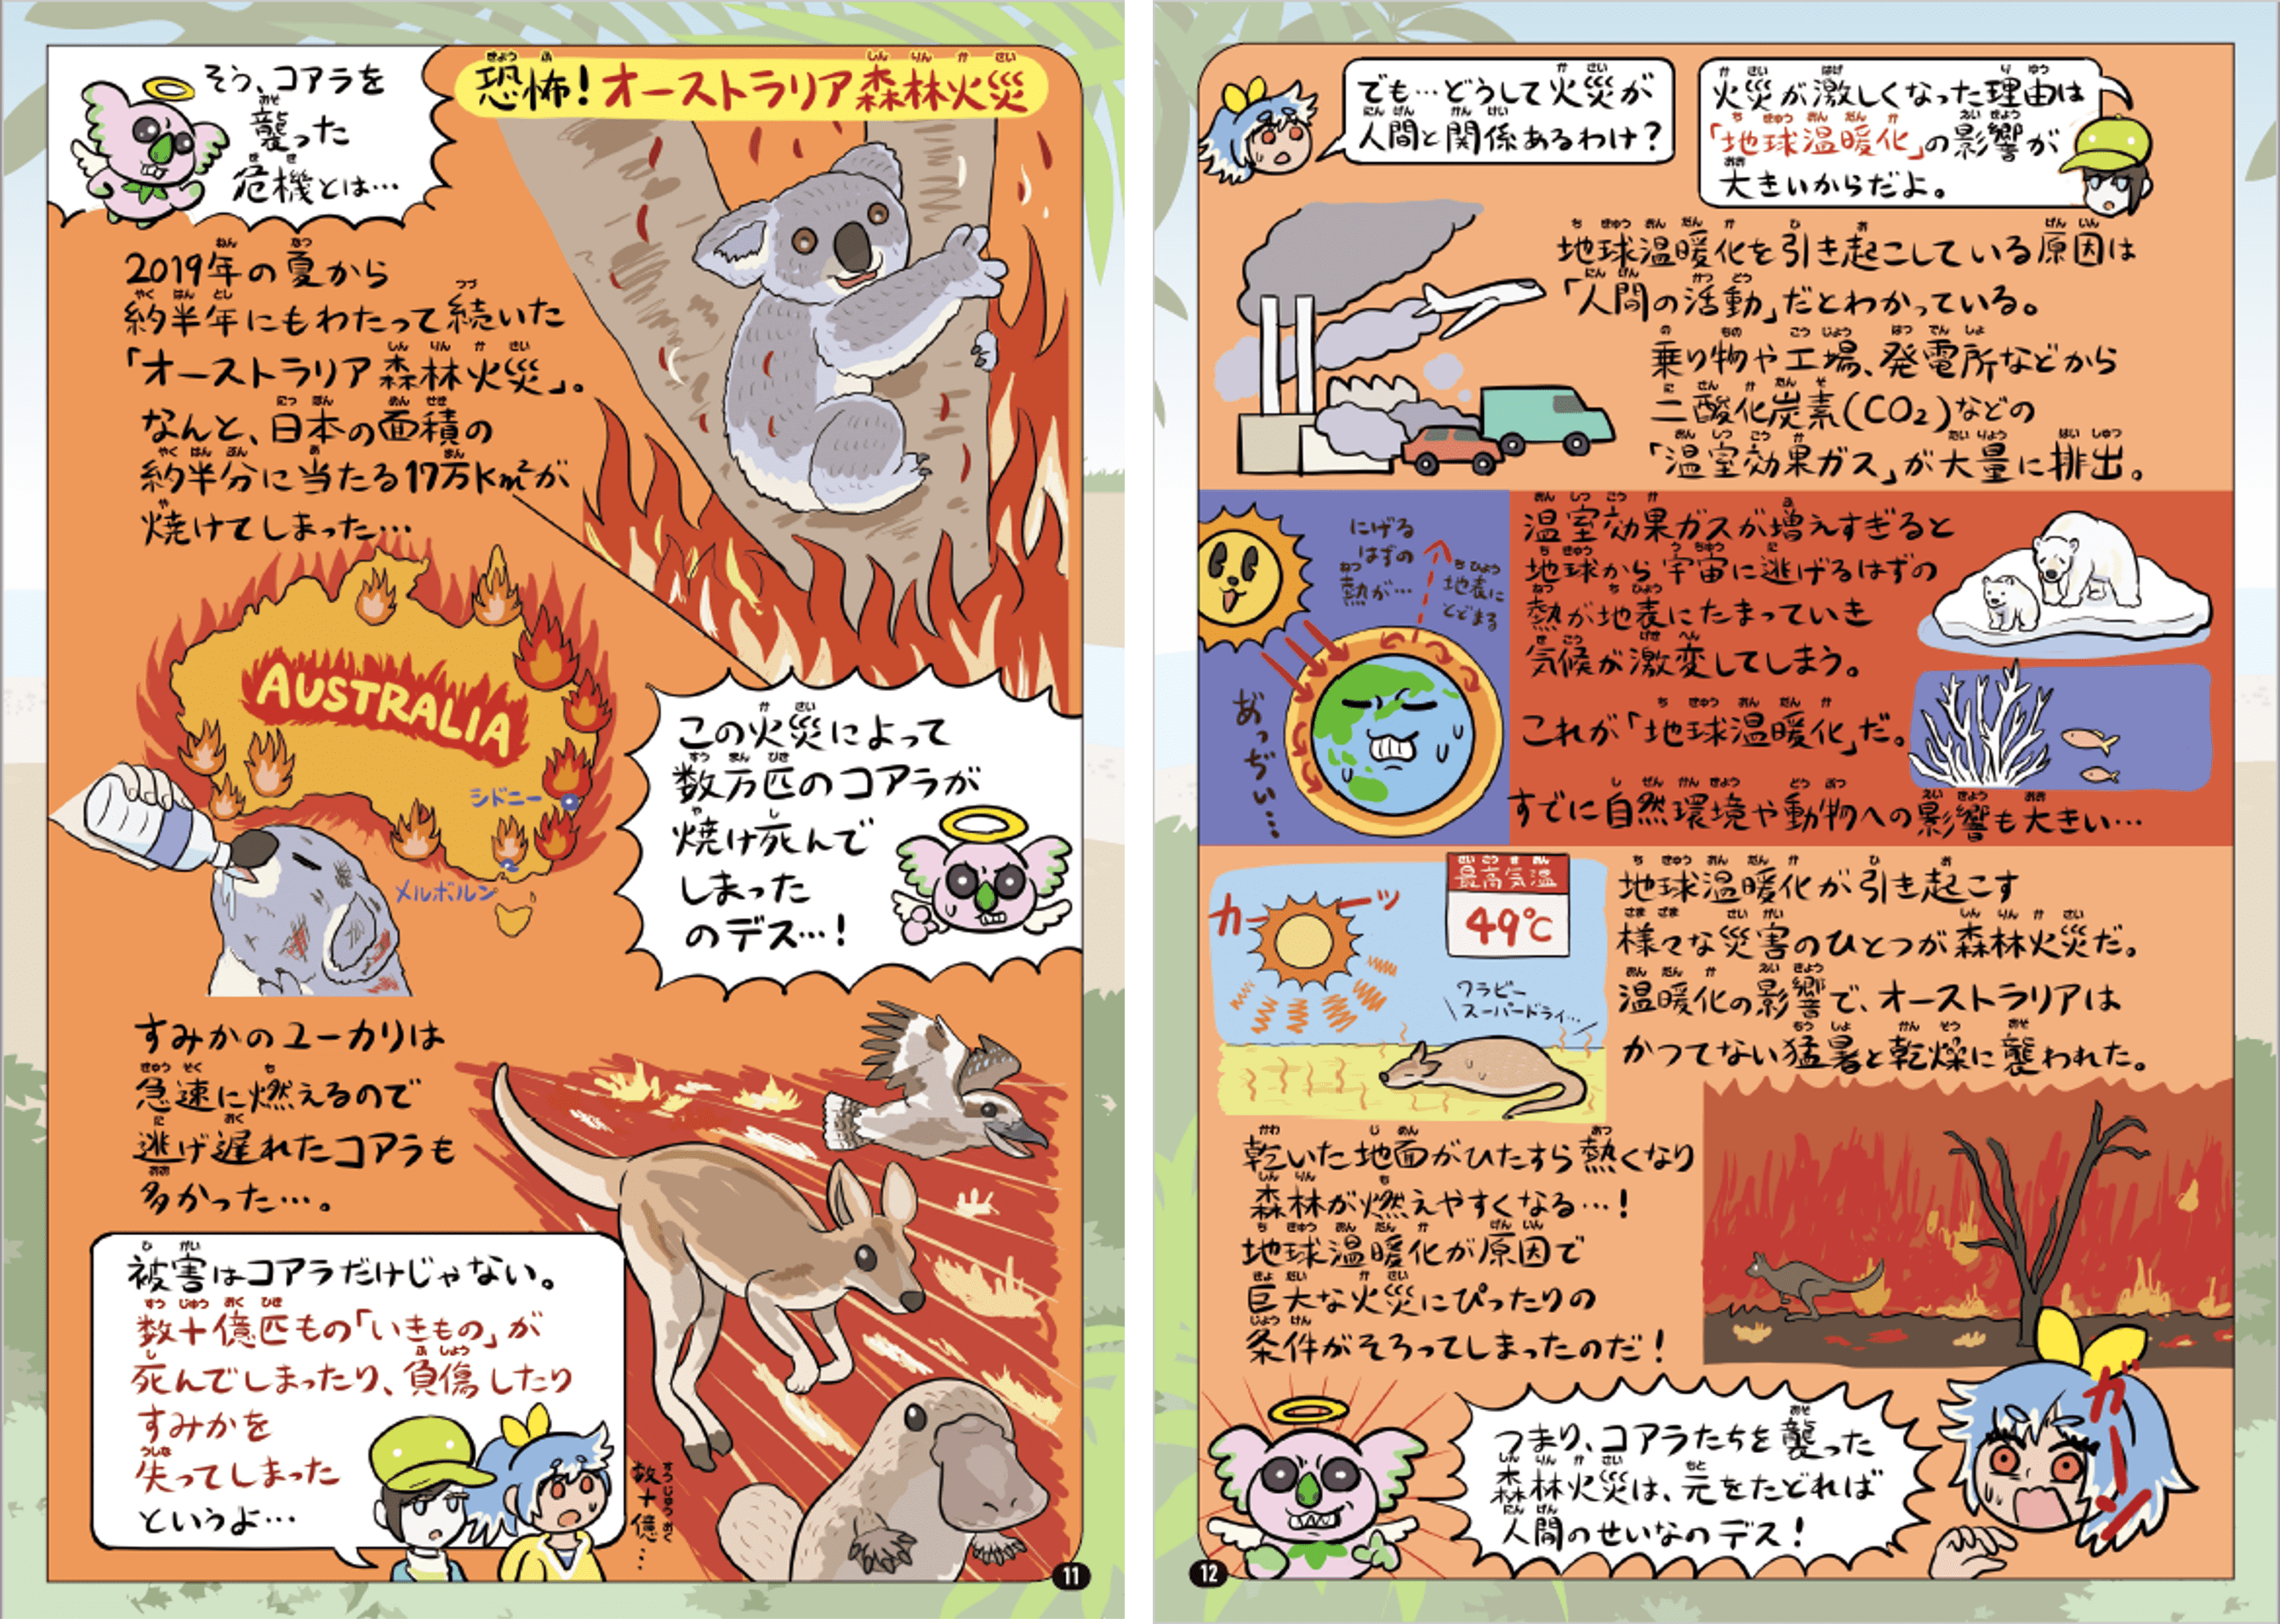 そう、コアラを
襲った
危機とは…
恐怖！オーストラリア森林火災
2019年の夏から
約半年にもわたって続いた
「オーストラリア森林火災」。
なんと、日本の面積の
約半分に当たる17万km²が
焼けてしまった…
AUSTRALIA
シドニー
メルボルン
この火災によって
数万匹のコアラが
焼け死んで
しまった
のデス…！
すみかのユーカリは
急速に燃えるので
逃げ遅れたコアラも
多かった…。
被害はコアラだけじゃない。
数十億匹もの「いきもの」が
死んでしまったり、負傷したり
すみかを
失ってしまった
というよ…
数十億…
11
でも…どうして火災が
人間と関係あるわけ？
火災が激しくなった理由は
「地球温暖化」の影響が
大きいからだよ。
地球温暖化を引き起こしている原因は
「人間の活動」だとわかっている。
乗り物や工場、発電所などから
二酸化炭素(CO₂)などの
「温室効果ガス」が大量に排出。
にげる
はずの
熱が…
地表に
とどまる
あっぢぃ…
温室効果ガスが増えすぎると
地球から宇宙に逃げるはずの
熱が地表にたまっていき
気候が激変してしまう。
これが「地球温暖化」だ。
すでに自然環境や動物への影響も大きい…
カーーッ
最高気温
49℃
ワラビー
スーパードライ…
地球温暖化が引き起こす
様々な災害のひとつが森林火災だ。
温暖化の影響で、オーストラリアは
かつてない猛暑と乾燥に襲われた。
乾いた地面がひたすら熱くなり
森林が燃えやすくなる…！
地球温暖化が原因で
巨大な火災にぴったりの
条件がそろってしまったのだ！
つまり、コアラたちを襲った
森林火災は、元をたどれば
人間のせいなのデス！
ガーン
12